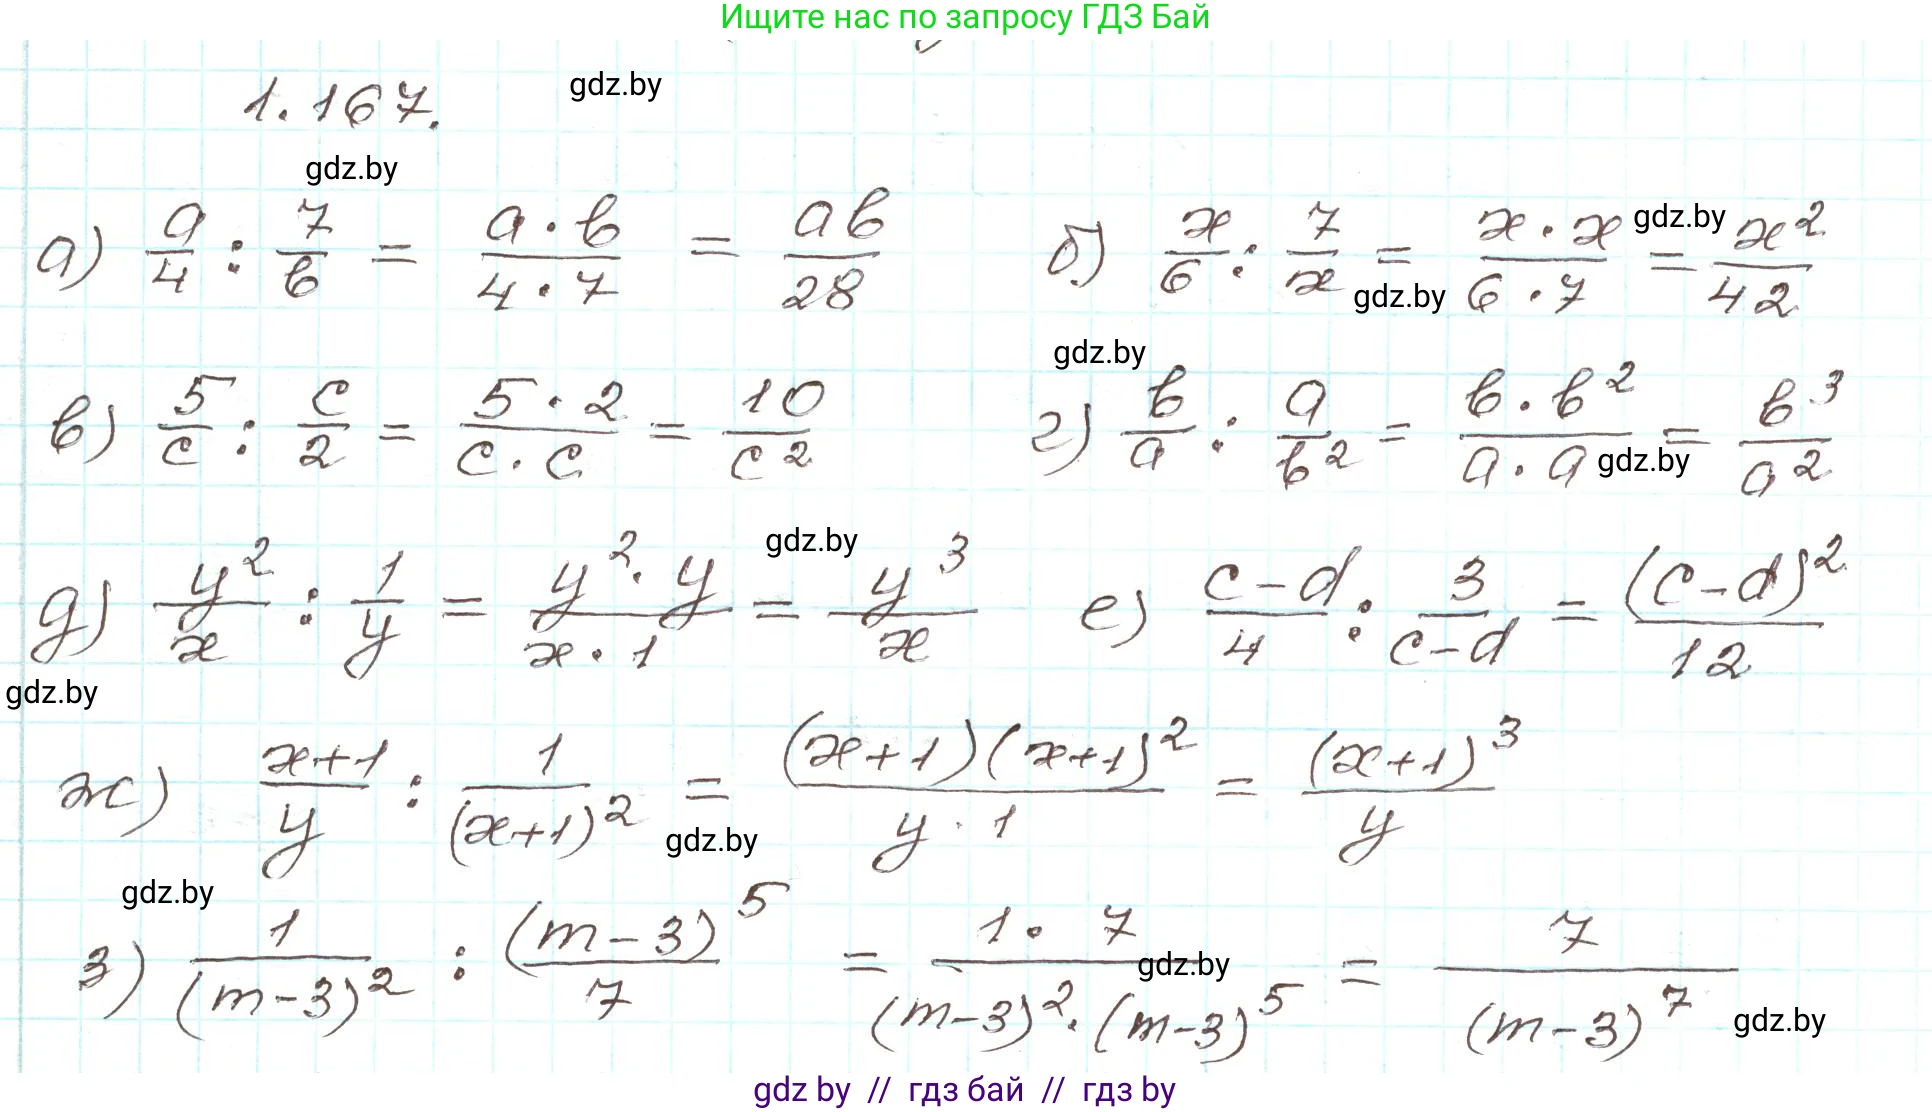 Ищите нас по запросу ГДЗ Бай
1.167. gdz.by
gdz.by
а) a/4 : 7/b = a·b/4·7 = ab/28 б) x/6 : 7/x = x·x/6·7 = x²/42 gdz.by
gdz.by
gdz.by
в) 5/c : c/2 = 5·2/c·c = 10/c² г) b/a : a/b² = b·b²/a·a = b³/a² gdz.by
gdz.by
д) y²/x : 1/y = y²·y/x·1 = y³/x е) c-d/4 : 3/c-d = (c-d)²/12
gdz.by
ж) x+1/y : 1/(x+1)² = (x+1)(x+1)²/y·1 = (x+1)³/y
gdz.by
gdz.by
з) 1/(m-3)² : (m-3)⁵/7 = 1·7/(m-3)²·(m-3)⁵ = 7/(m-3)⁷
gdz.by
gdz.by
gdz by // гдз бай // gdz by